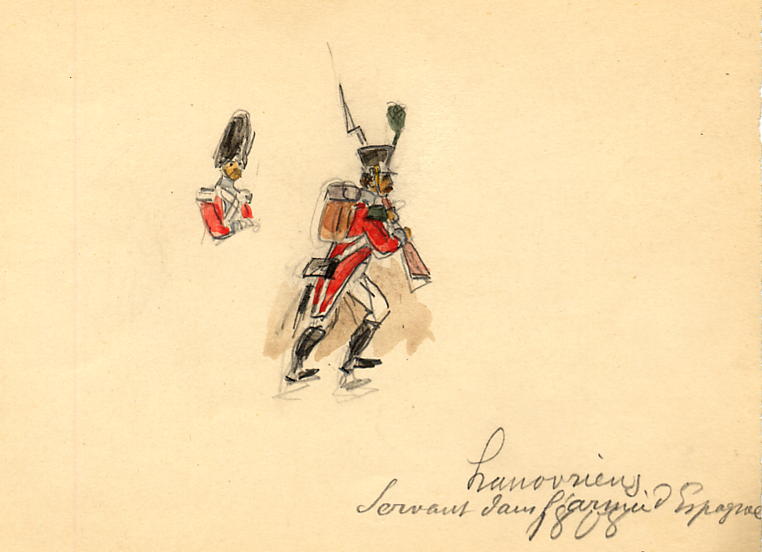 hanovriens
Servant dans l'armée d'Espagne